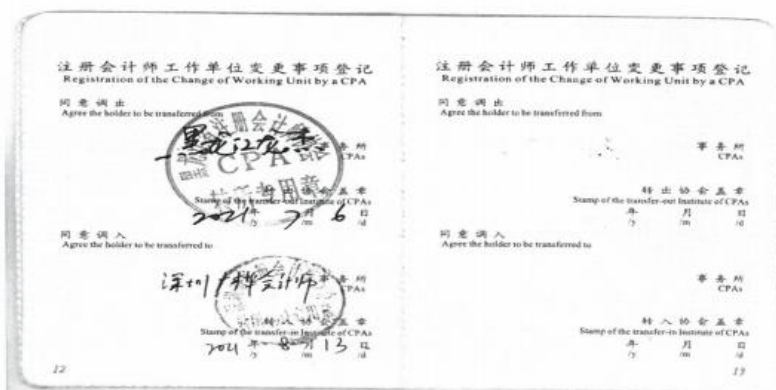 注册会计师工作单位变更事项登记
Registration of the Change of Working Unit by a CPA
同意调出
Agree the holder to be transferred from
黑龙江
事务所
CPAs
CPA
专用章
转出协会盖章
Stamp of the transfer-out Institute of CPAs
2021年 7月 6日
/y /m /d
同意调入
Agree the holder to be transferred to
深圳 会计师事务所
CPAs
转入协会盖章
Stamp of the transfer-in Institute of CPAs
2021年 8月 13日
/y /m /d
12
注册会计师工作单位变更事项登记
Registration of the Change of Working Unit by a CPA
同意调出
Agree the holder to be transferred from
事务所
CPAs
转出协会盖章
Stamp of the transfer-out Institute of CPAs
年 月 日
/y /m /d
同意调入
Agree the holder to be transferred to
事务所
CPAs
转入协会盖章
Stamp of the transfer-in Institute of CPAs
年 月 日
/y /m /d
13